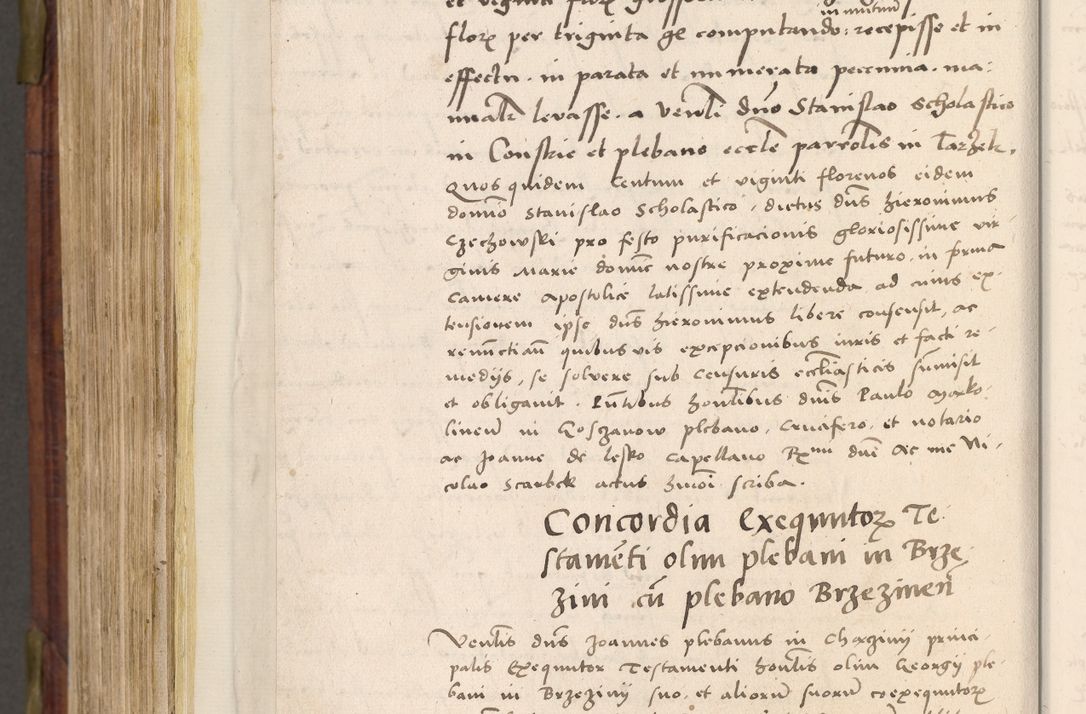 et viginti florꝫ grossos
in mutuum
florꝫ per triginta gr computando: recepisse et in
effectu in parata et numerata pecunia ma:
nualr levasse. a venli dno Stanislao Scholastico
in Constrie et plebano eccle parrolis in Tarzek.
Quos quidem Centum et viginti florenos eidem
domno Stanislao Scholastico, dictus dns Hieronimus
Czechowski pro festo purificacionis gloriosissime vir
ginis Marie domne nostre proxime futuro. in forma
Camere apostolice latissime extendenda ad cuius ex-
tensionem ipse dns Hieronimus libere consensit, ac
renunctians quibusvis excepcionibus iuris et facti re-
medijs, se solvere sub Censuris eccliasticis submisit
et obligavit. Pntibus honlibus dnis Paulo Marko
linens in Goszanow plebano, Crucifero, et notario
ac Joanne de lesko Capellano Rmi dni Ac me Ni-
colao Scarbek actus hmoi scriba.
Concordia Exequutorꝫ Te-
stamenti olim plebani in Brze-
zini cu plebano Brzezinen
Venlis dns Joannes plebanus in Charzinij princi-
palis Exequutor Testamenti honlis olim Georgij ple-
bani in Brzezinij suo. et aliorum suorum coexequutorꝫ